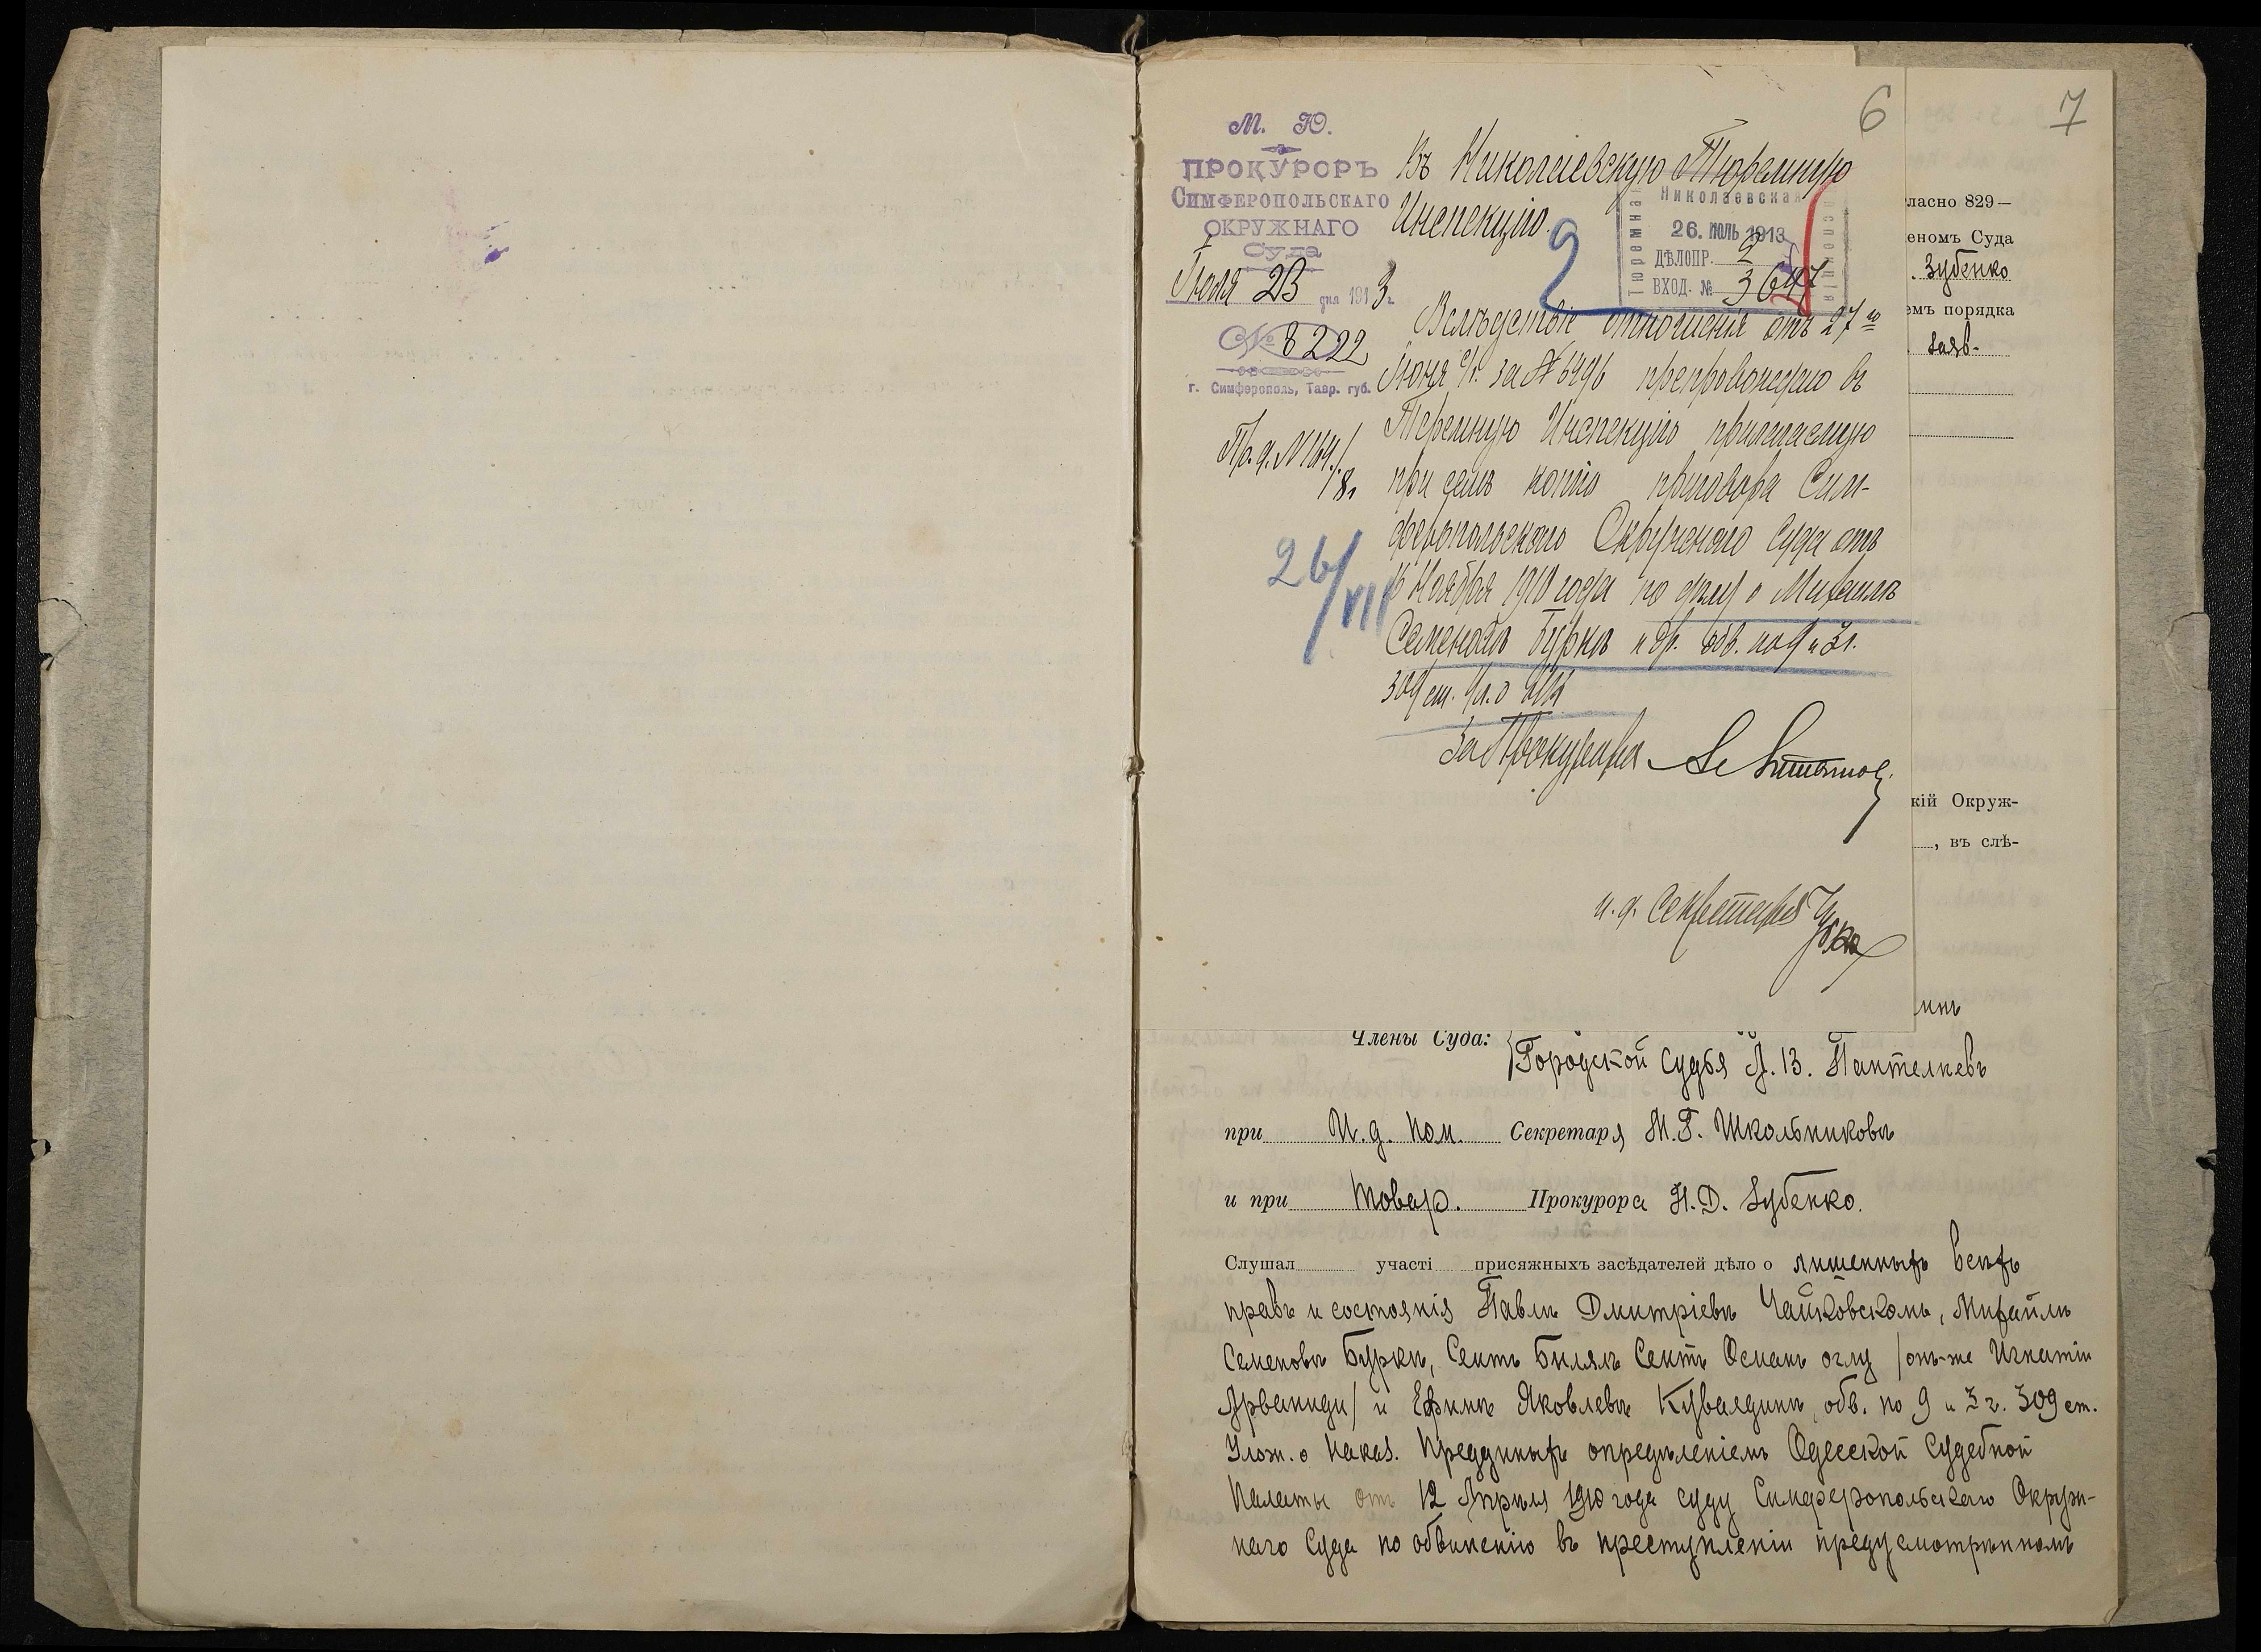 6
7
М. Ю.
ПРОКУРОРЪ
СИМФЕРОПОЛЬСКАГО
ОКРУЖНАГО
Суда
Іюля 23 дня 1913 г.
№ 8222
г. Симферополь, Тавр. губ.
Пр. д. № 164/8 г.
26/VII
Въ Николаевскую Тюремную
Инспекцію.
2
Тюремная
Николаевская
26. ІЮЛЬ 1913
ДѢЛОПР. 2
ВХОД. № 3647
Вслѣдствіе отношенія отъ 27го
Іюня с/г. за № 6496 препровождаю въ
Тюремную Инспекцію прилагаемую
при семъ копію приговора Сим-
феропольскаго Окружного Суда отъ
6 Ноября 1910 года по дѣлу о Михаилѣ
Семеновѣ Буркѣ и др. обв. по 9 и 3 г.
309 ст. Ул. о Нак
За Прокурора
и. д. Секретаря
ласно 829—
еномъ Суда
. Зубенко
емъ порядка
заяв-
кій Окруж-
, въ слѣ-
Члены Суда:
Городской Судья А. В. Пантелѣевъ
при И. д. Пом. Секретаря М. Г. Школьниковѣ
и при Товар. Прокурора Н. Д. Зубенко.
Слушал участі присяжныхъ засѣдателей дѣло о лишенныхъ всѣхъ
правъ и состоянія Павлѣ Дмитріевѣ Чайковскомъ, Михайлѣ
Семеновѣ Буркѣ, Сеитъ Билялѣ Сеитъ Османъ оглу /онъ-же Игнатій
Арваниди/ и Ефимѣ Яковлевѣ Кувалдинѣ, обв. по 9 и 3 г. 309 ст.
Улож. о Наказ. Преданныхъ опредѣленіемъ Одесской Судебной
Палаты отъ 12 Апрѣля 1910 года суду Симферопольскаго Окруж-
наго Суда по обвиненію въ преступленіи предусмотрѣнномъ